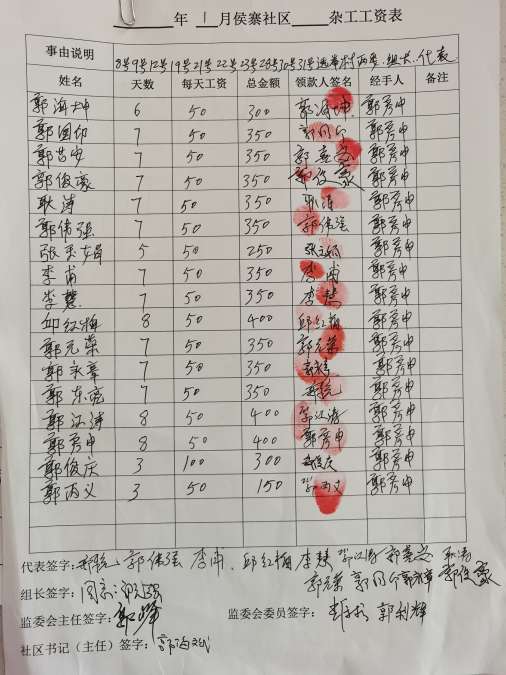 年 1月侯寨社区 杂工工资表
事由说明 8号9号12号19号21号22号23号28号30号31号选举村两委、组长、代表
姓名 天数 每天工资 总金额 领款人签名 经手人 备注
郭海坤 6 50 300 郭海坤 郭彦申
郭国印 7 50 350 郭彦申
郭喜安 7 50 350 郭喜安 郭彦申
郭俊豪 7 50 350 郭俊豪 郭彦申
耿涛 7 50 350 耿涛 郭彦申
郭伟强 7 50 350 郭伟强 郭彦申
张玉娟 5 50 250 张玉娟 郭彦申
李甫 7 50 350 李甫 郭彦申
李慧 7 50 350 李慧 郭彦申
邱红梅 8 50 400 邱红梅 郭彦申
郭元荣 7 50 350 郭元荣 郭彦申
郭永章 7 50 350 郭彦申
郭东 7 50 350 郭彦申
郭江涛 8 50 400 郭江涛 郭彦申
郭彦申 8 50 400 郭彦申 郭彦申
郭俊庆 3 100 300 郭俊庆 郭彦申
郭丙义 3 50 150 郭丙义 郭彦申
代表签字: 郭伟强 李甫、邱红梅 李慧 郭江涛 郭喜安 耿涛
郭元荣 郭永章 郭俊豪
组长签字:
监委会主任签字: 监委会委员签字: 郭利辉
社区书记（主任）签字: 郭海斌